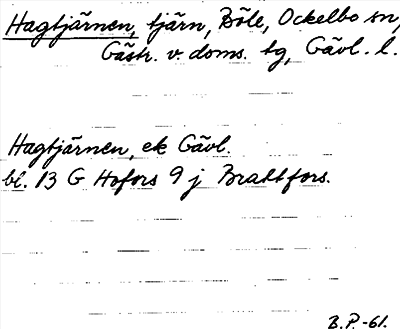 Hagtjärnen, tjärn, Böle, Ockelbo sn,
Gästr. v. doms. tg, Gävl. l.
Hagtjärnen, ek Gävl.
bl. 13 G Hofors 9 j Brattfors.
B.P.-61.